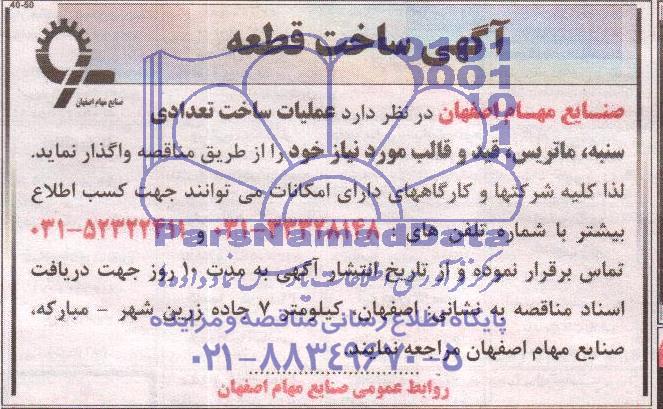 40-50
آگهی ساخت قطعه
صنایع مهام اصفهان
صنایع مهام اصفهان در نظر دارد عملیات ساخت تعدادی
سنبه، ماتریس، قید و قالب مورد نیاز خود را از طریق مناقصه واگذار نماید.
لذا کلیه شرکتها و کارگاههای دارای امکانات می توانند جهت کسب اطلاع
بیشتر با شماره تلفن های : ۳۳۳۲۸۱۴۸-۰۳۱ و ۵۲۳۲۲۴۱۱-۰۳۱
ParsNamadData
تماس برقرار نموده و از تاریخ انتشار آگهی به مدت ۱۰ روز جهت دریافت
اسناد مناقصه به نشانی: اصفهان، کیلومتر ۷ جاده زرین شهر - مبارکه،
پایگاه اطلاع رسانی مناقصه و مزایده
صنایع مهام اصفهان مراجعه نمایند.
۰۲۱-۸۸۳۴۹۶۷۰-۵
روابط عمومی صنایع مهام اصفهان